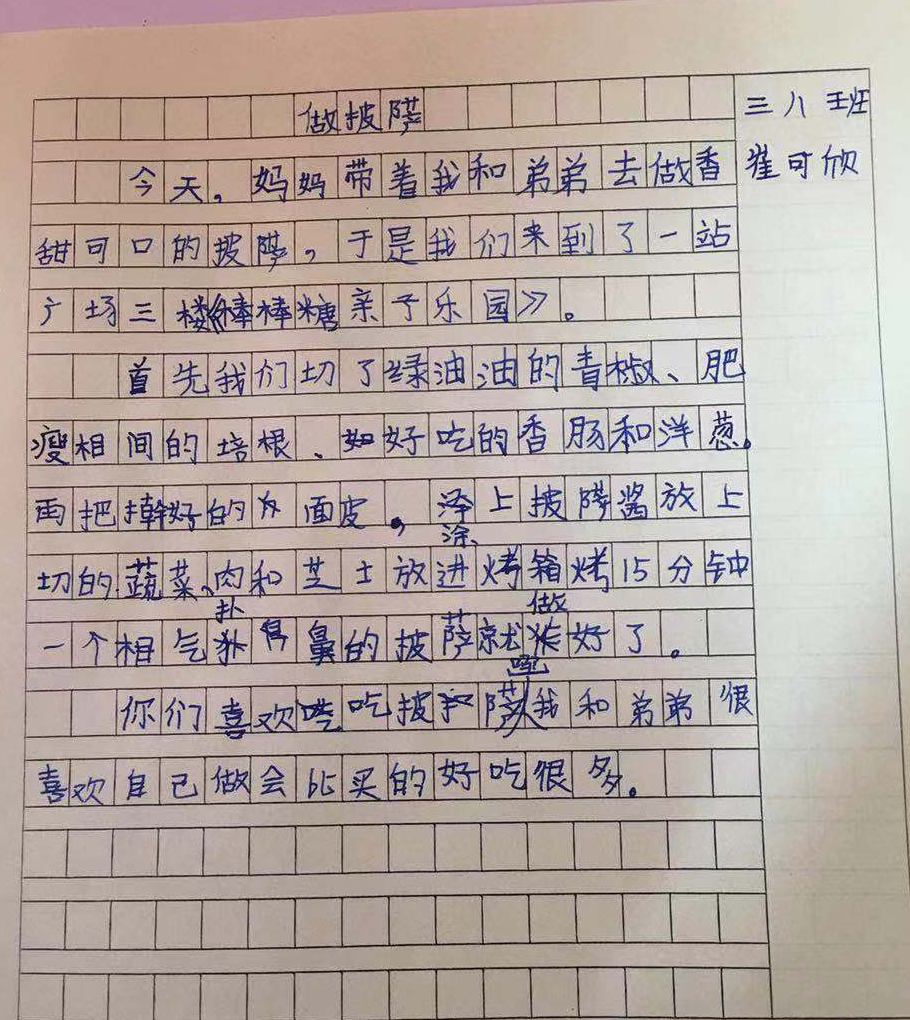 做披萨
三八班
崔可欣
今天，妈妈带着我和弟弟去做香
甜可口的披萨，于是我们来到了一站
广场三楼《棒棒糖亲子乐园》。
首先我们切了绿油油的青椒、肥
瘦相间的培根、好吃的香肠和洋葱。
再把擀好的面皮，涂上披萨酱放上
切的蔬菜、肉和芝士放进烤箱烤15分钟
一个相气扑鼻的披萨就做好了。
你们喜欢吃披萨吗我和弟弟很
喜欢自己做会比买的好吃很多。